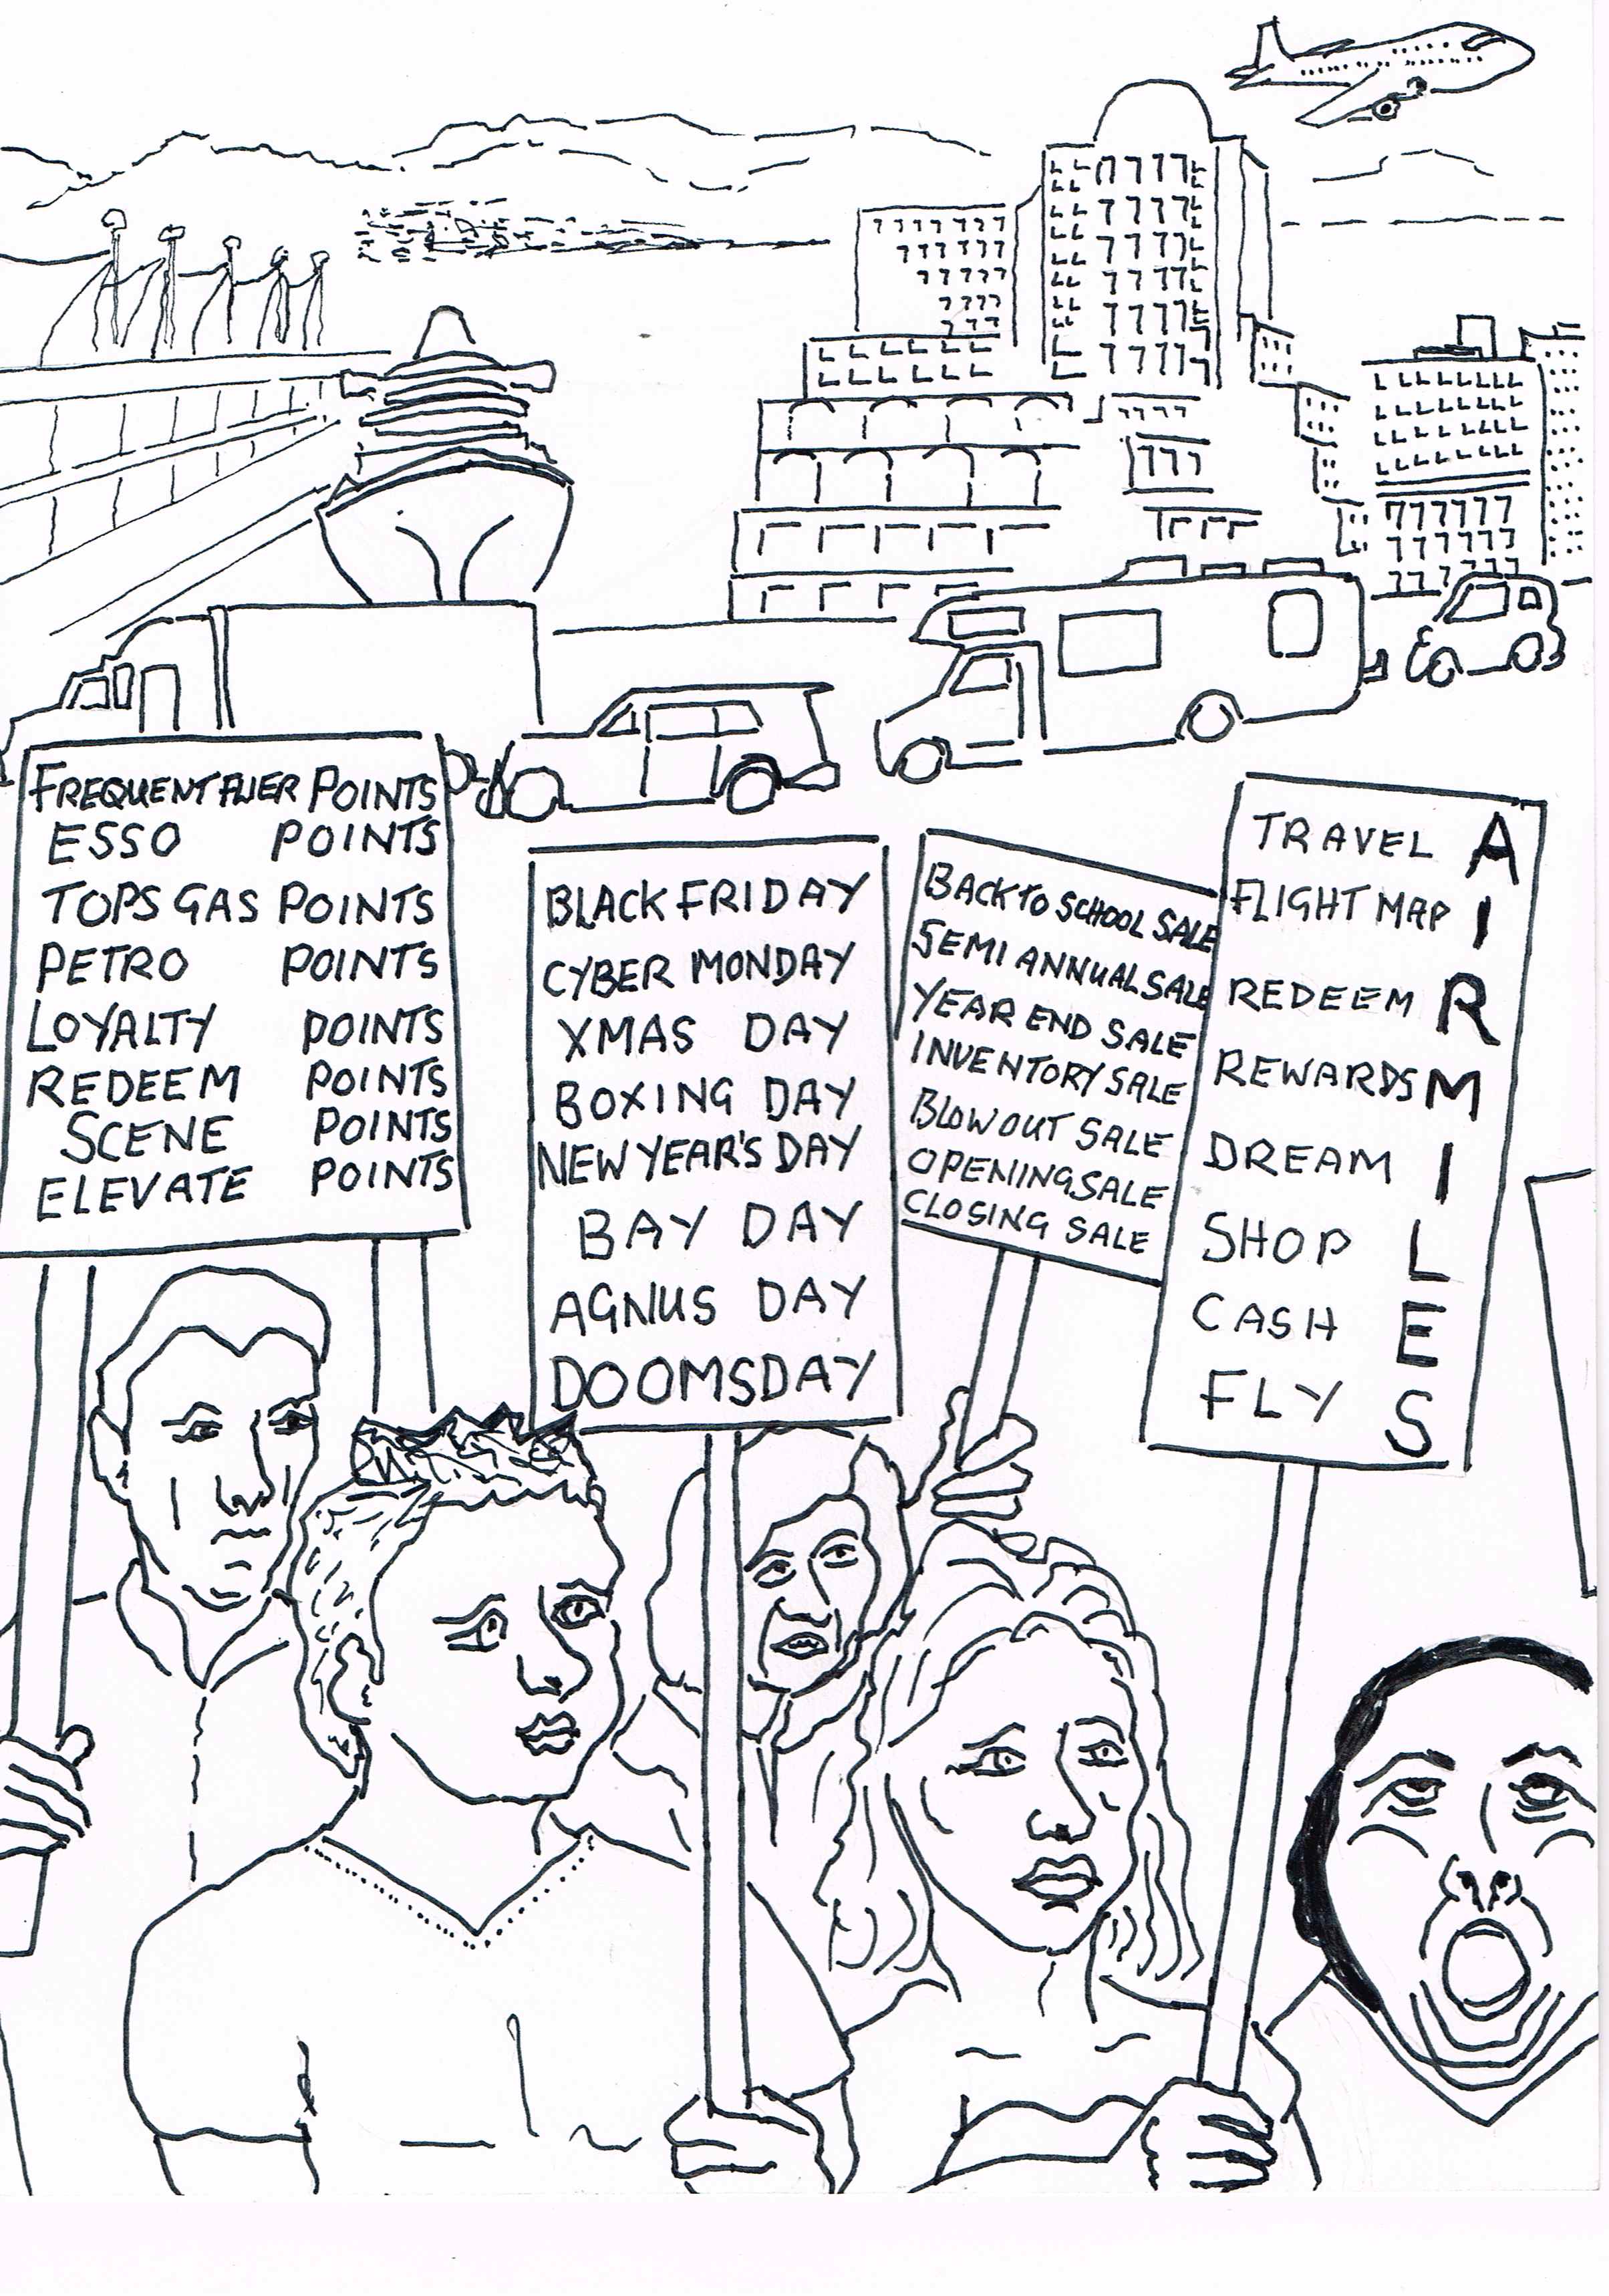 FREQUENT FLIER POINTS
ESSO POINTS
TOPS GAS POINTS
PETRO POINTS
LOYALTY POINTS
REDEEM POINTS
SCENE POINTS
ELEVATE POINTS
BLACK FRIDAY
CYBER MONDAY
XMAS DAY
BOXING DAY
NEW YEAR'S DAY
BAY DAY
AGNUS DAY
DOOMSDAY
BACK TO SCHOOL SALE
SEMI ANNUAL SALE
YEAR END SALE
INVENTORY SALE
BLOWOUT SALE
OPENING SALE
CLOSING SALE
TRAVEL
FLIGHT MAP
REDEEM
REWARDS
DREAM
SHOP
CASH
FLY
AIRMILES